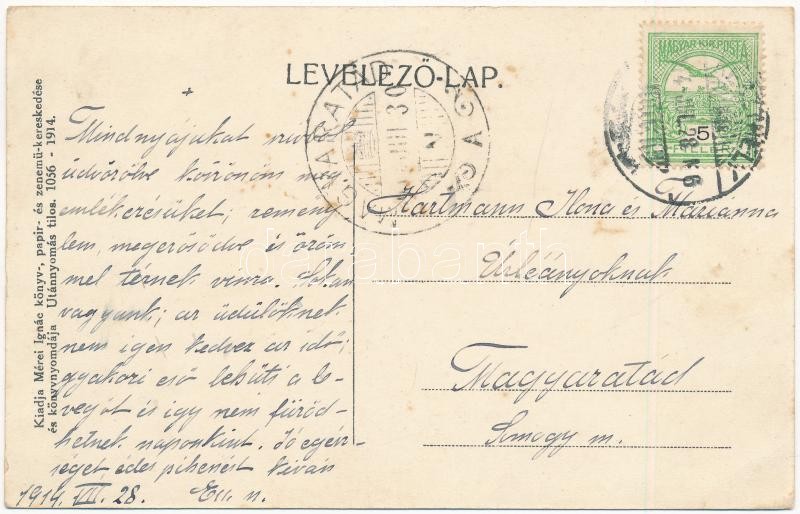 LEVELEZŐ-LAP.
MAGYAR KIR. POSTA
5
MAGYARATÁD
Kiadja Mérei Ignác könyv-, papir- és zenemű-kereskedése
és könyvnyomdája Utánnyomás tilos. 1056 - 1914.
Mindnyájukat
üdvözölve köszönöm meg
emlékezésüket; remény
lem, megerősödve és öröm
mel térnek vissza. Sokan
vagyunk; az üdülőknek
nem igen kedvez az idő;
gyakori eső lehűti a le-
vegőt és így nem fürőd-
hetnek naponkint. Jó egés-
séget édes pihenést kíván
1914. VII. 28.
Hartmann Ilona és Mariánna
Úrleányoknak
Magyaratád
Somogy m.
darabanth